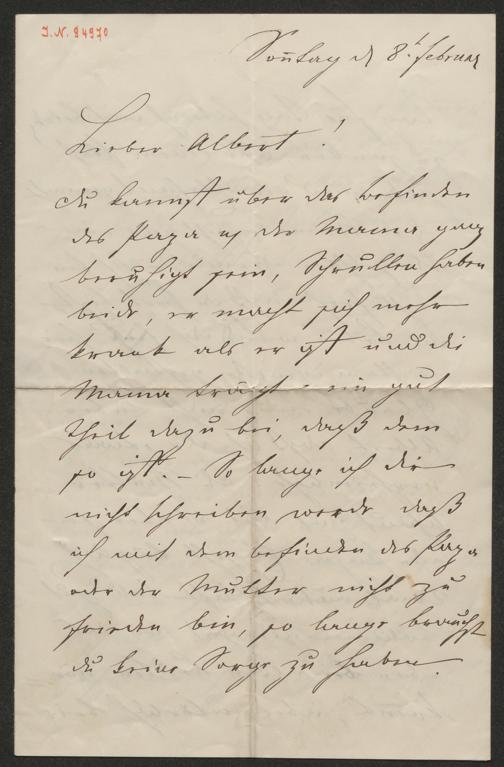 J.N. 94970
Sonntag d 8t. Februar
Lieber Albert!
du kannst über das Befinden
des Papa u der Mama ganz
beruhigt sein, Schrullen haben
beide, er macht sich mehr
krank als er ist und die
Mama trägt ein gut
Theil dazu bei, daß dem
so ist. – So lange ich dir
nicht schreiben werde daß
ich mit dem Befinden des Papa
oder der Mutter nicht zu
frieden bin, so lange brauchst
du keine Sorge zu haben.